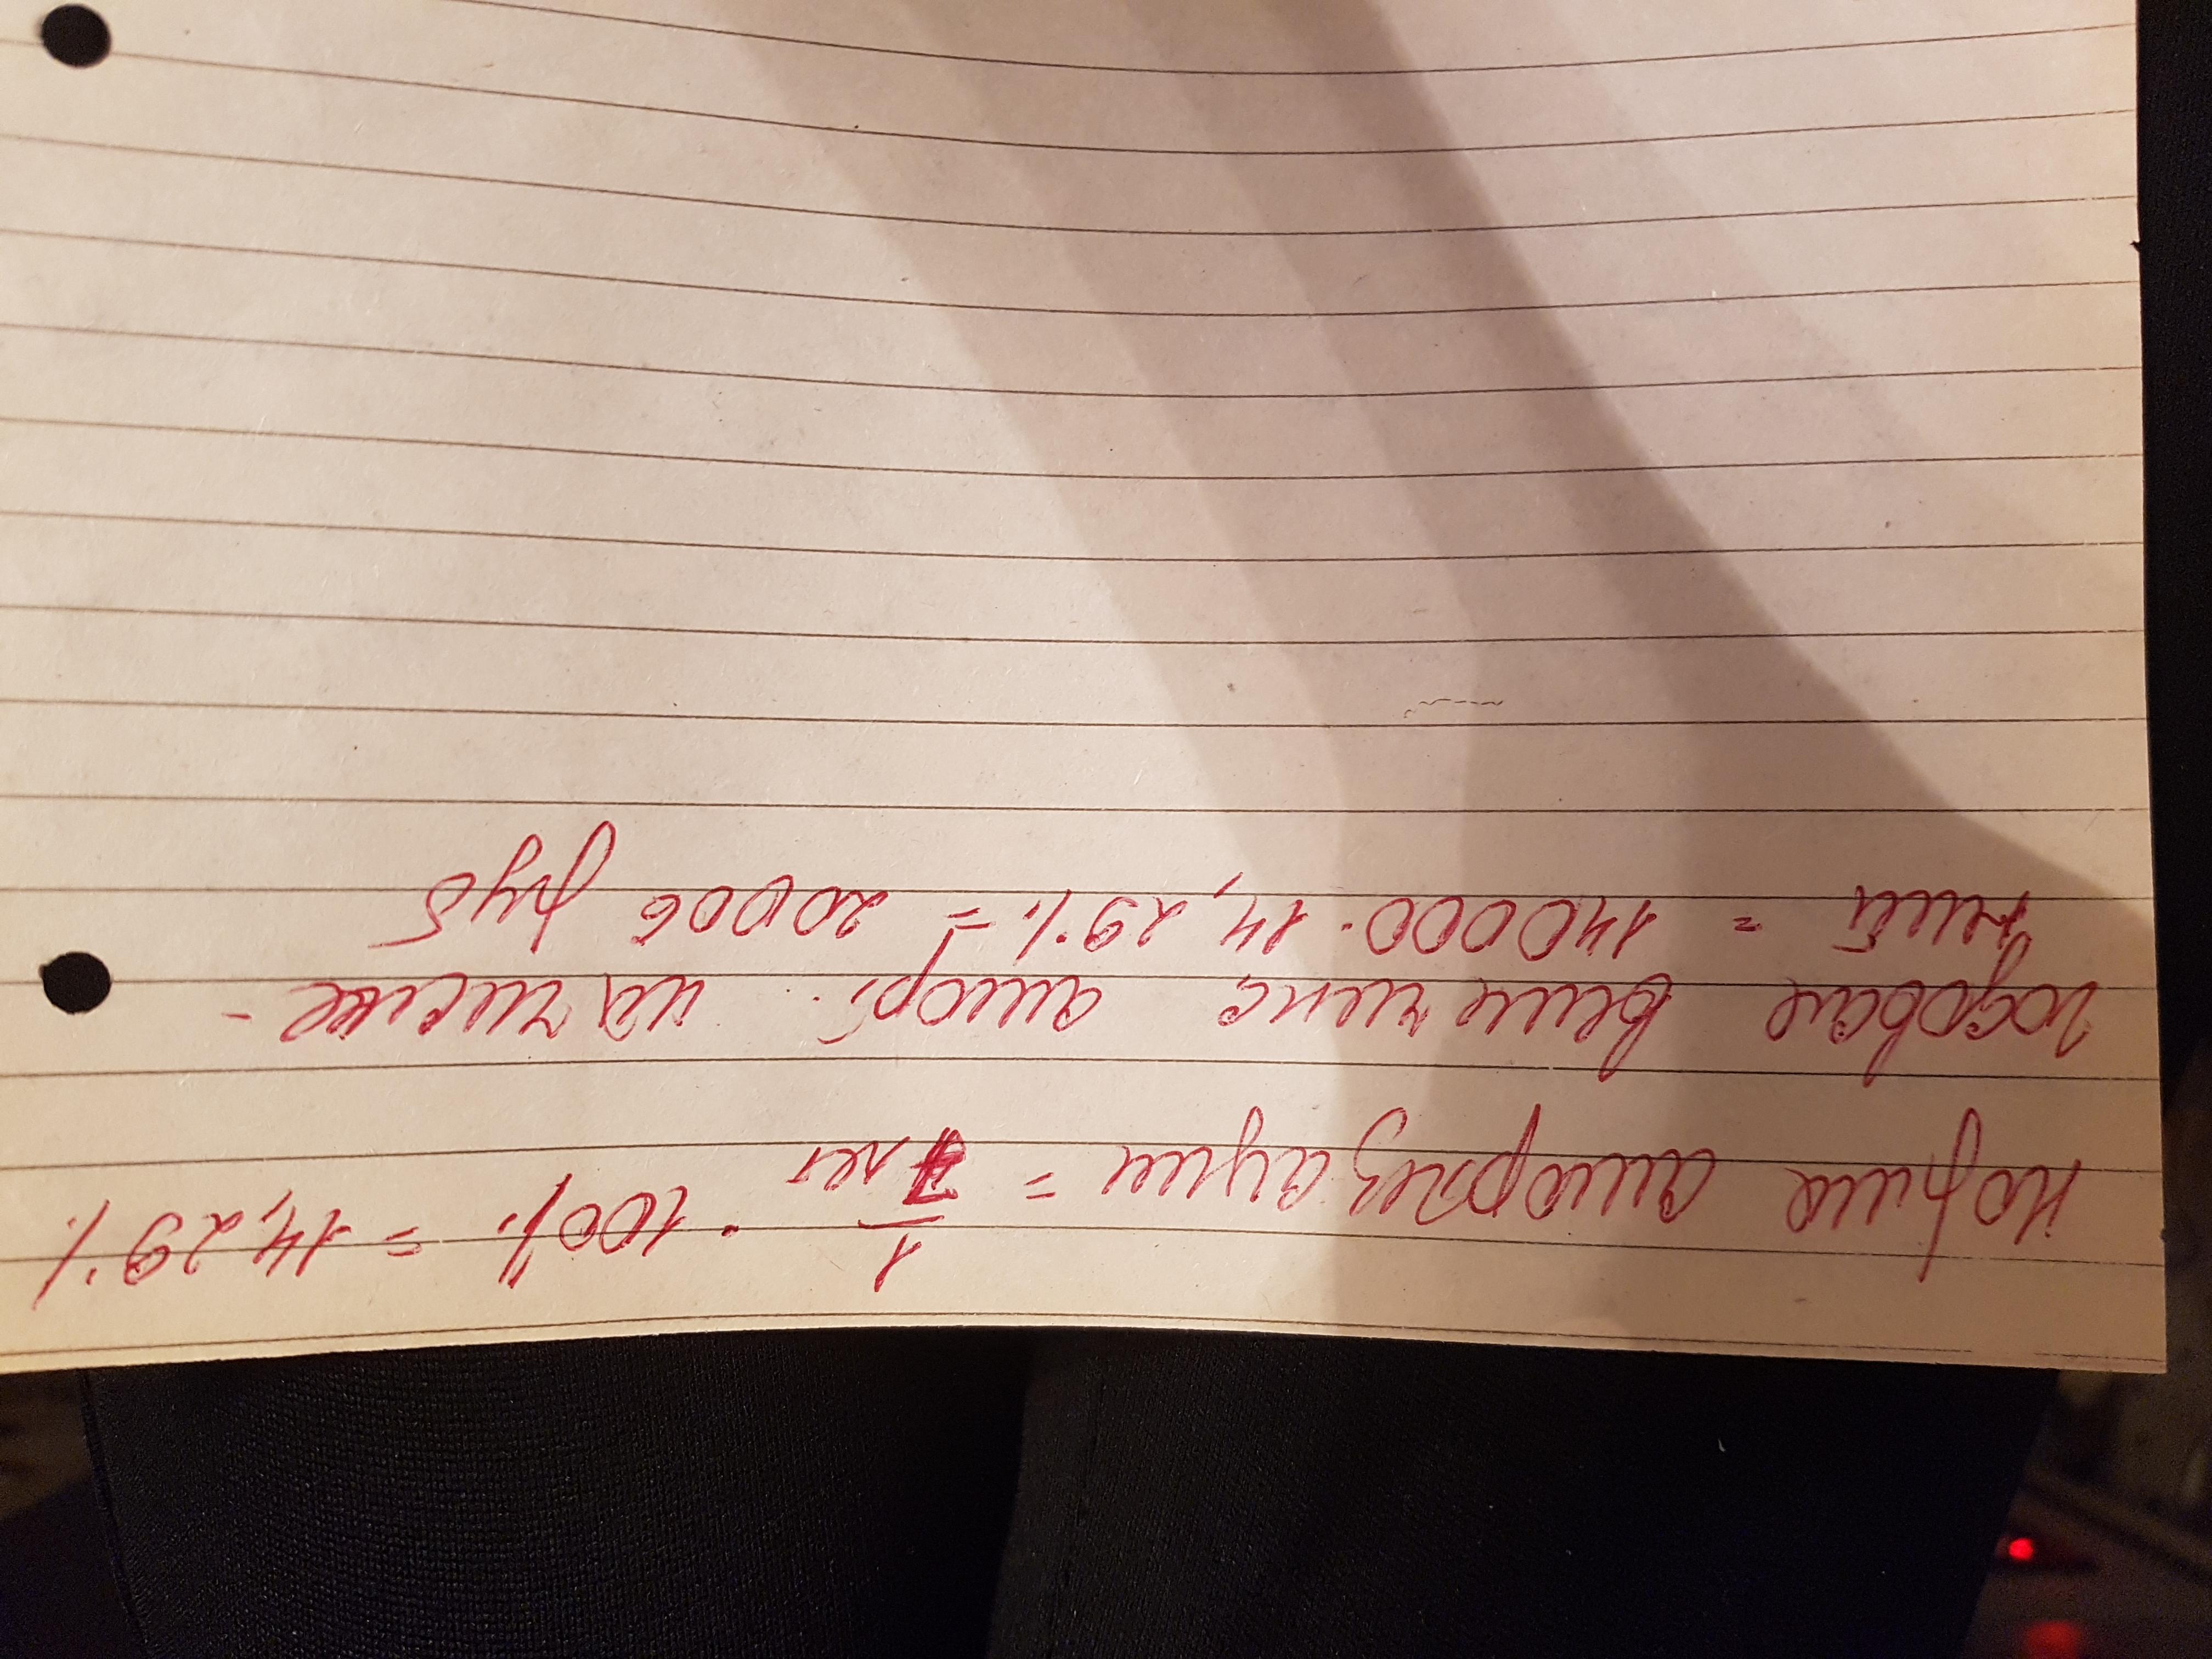 Норма амортизации = 1/7 лет · 100% = 14,29%
годовая величина аморт. начисле-
ний = 140000 · 14,29% = 20006 руб